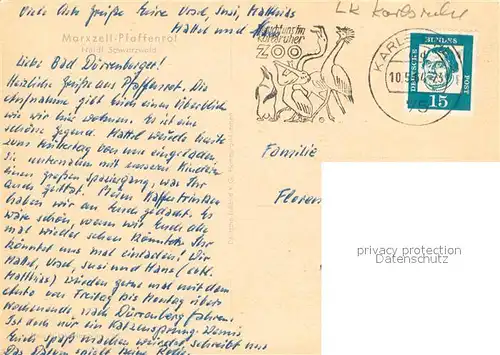 Viele liebe Grüße Eure Ursel, Susi, Matthias
Mattel und Hans
LK Karlsruhe
Marxzell-Pfaffenrot
Nördl. Schwarzwald
Karlsruher
ZOO
KARLS
10.
DEUTSCHE BUNDESPOST
15
Liebe Bad Dürrenberger!
Herzliche Grüße aus Pfaffenrot. Die
Aufnahme gibt Euch einen Überblick
wie wir hier wohnen. Es ist eine
schöne Gegend. Mattel wurde heute
von uns eingeladen,
Sie unternahm mit unseren Kindern
einen großen Spaziergang, was Ihr
auch gefiel. Beim Kaffeetrinken
haben wir an Euch gedacht. Es
wäre schön, wenn wir Euch alle
mal wieder sehen könnten. Ihr
könntet uns mal einladen! Die
Mattel, Ursel, Susi und Hans (evtl.
Matthias) würden gerne mal mit dem
Auto von Freitag bis Montag übers
Wochenende nach Dürrenberg fahren.
Ist doch nur ein Katzensprung. Wenns
Euch Spaß machen würde schreibt uns
Das Datum spielt keine Rolle.
Familie
Floren
pdfmedia.copyright
pdfmedia.copyright